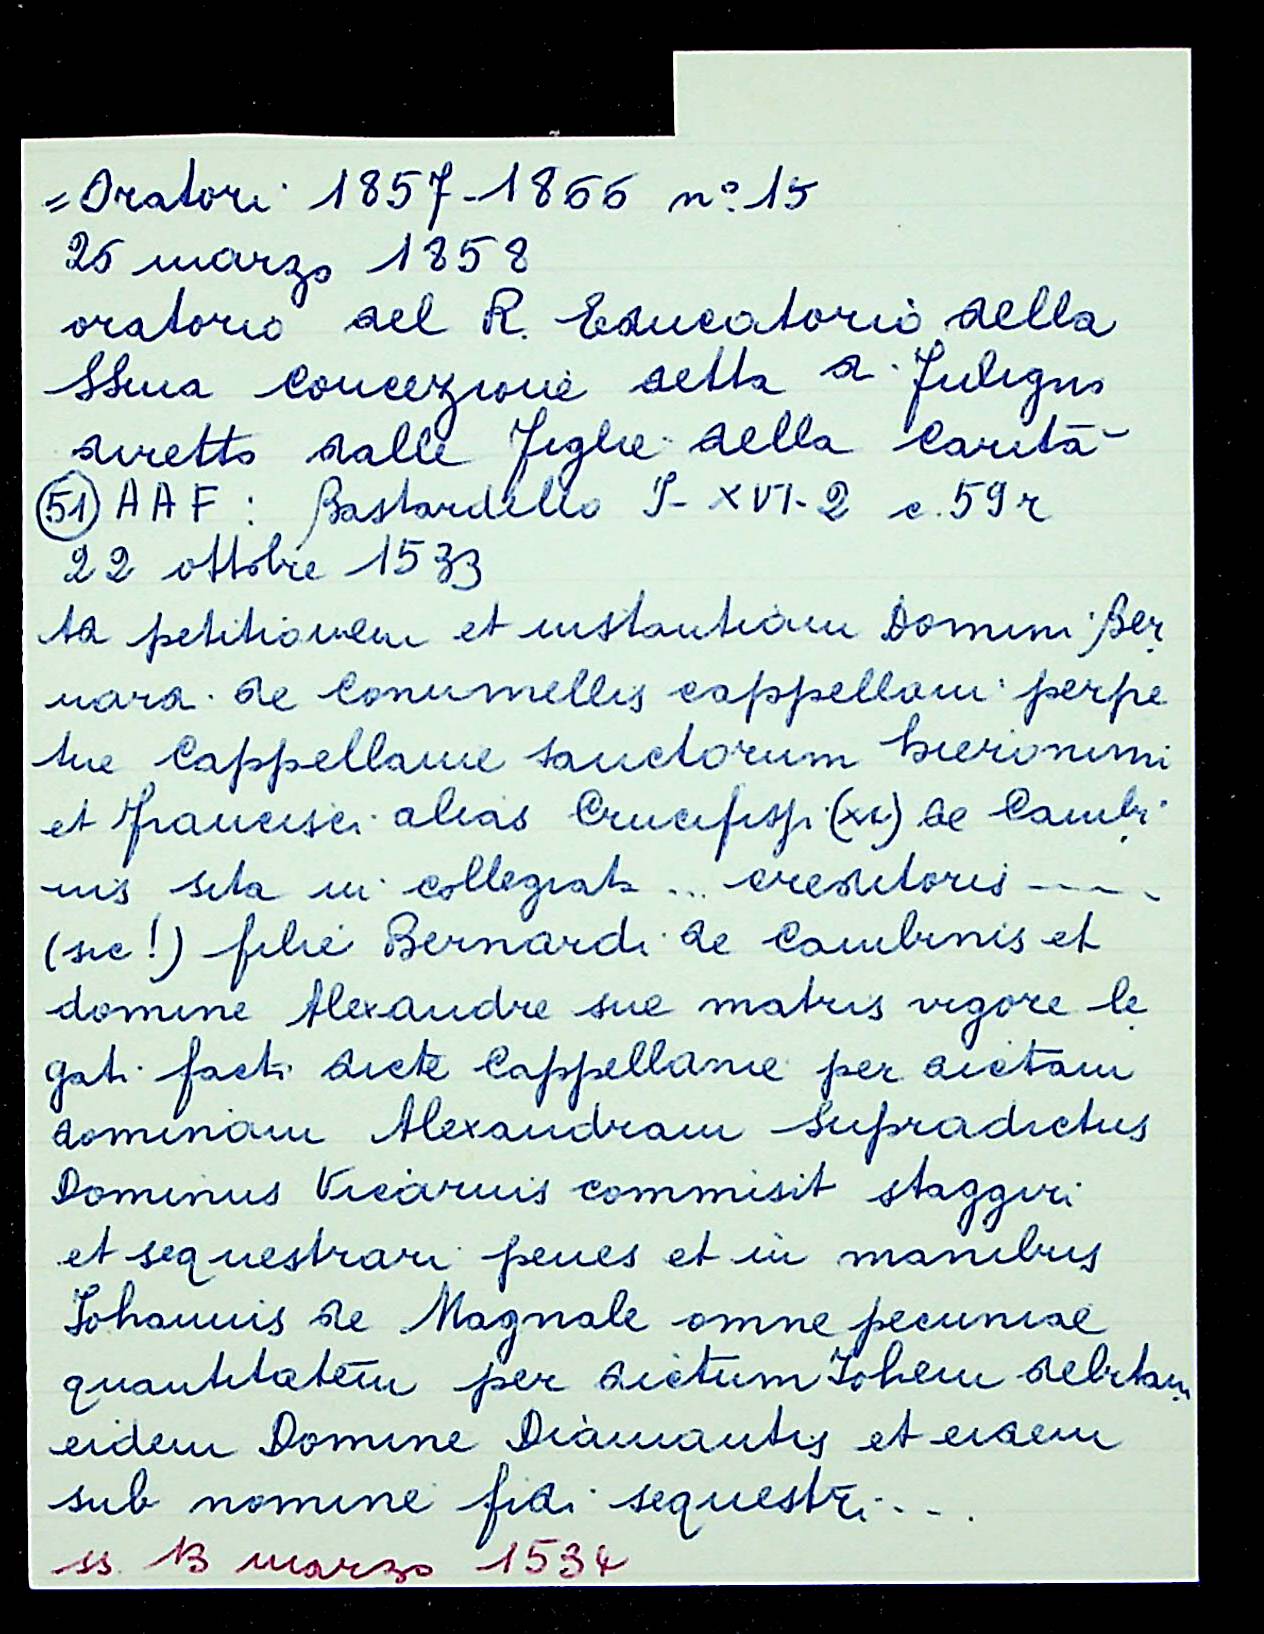 = Oratori 1857-1866 n° 15
26 marzo 1858
oratorio del R. Educatorio della
SSma Concezione detta d. Fuligno
diretto dalle Figlie della Carità
(51) A A F : Bastardello I-XVI-2 c. 59 r
22 ottobre 1533
Ad petitionem et instantiam Domini Ber
nard. de Conumellis cappellani perpe
tue Cappellanie sanctorum Hieronimi
et Francisci alias Crucifissi (xi) de Cambi
nis sita in collegiata ... creditoris ----
(sic!) filie Bernardi de Cambinis et
domine Alexandre sue matris vigore le
gati facti dicte Cappellanie per dictam
dominam Alexandram supradictus
Dominus Vicarius commisit staggiri
et sequestrari penes et in manibus
Johannis de Magnale omne pecuniae
quantitatem per dictum Johem debitam
eidem Domine Diamantis et eidem
sub nomine fidi sequestri ...
ss. 13 marzo 1534